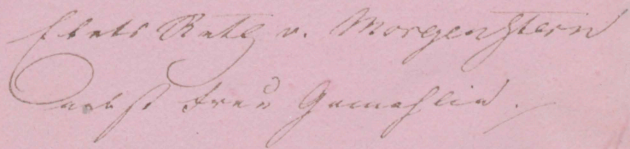 Etats Rath v. Morgenstern
nebst Frau Gemahlin.